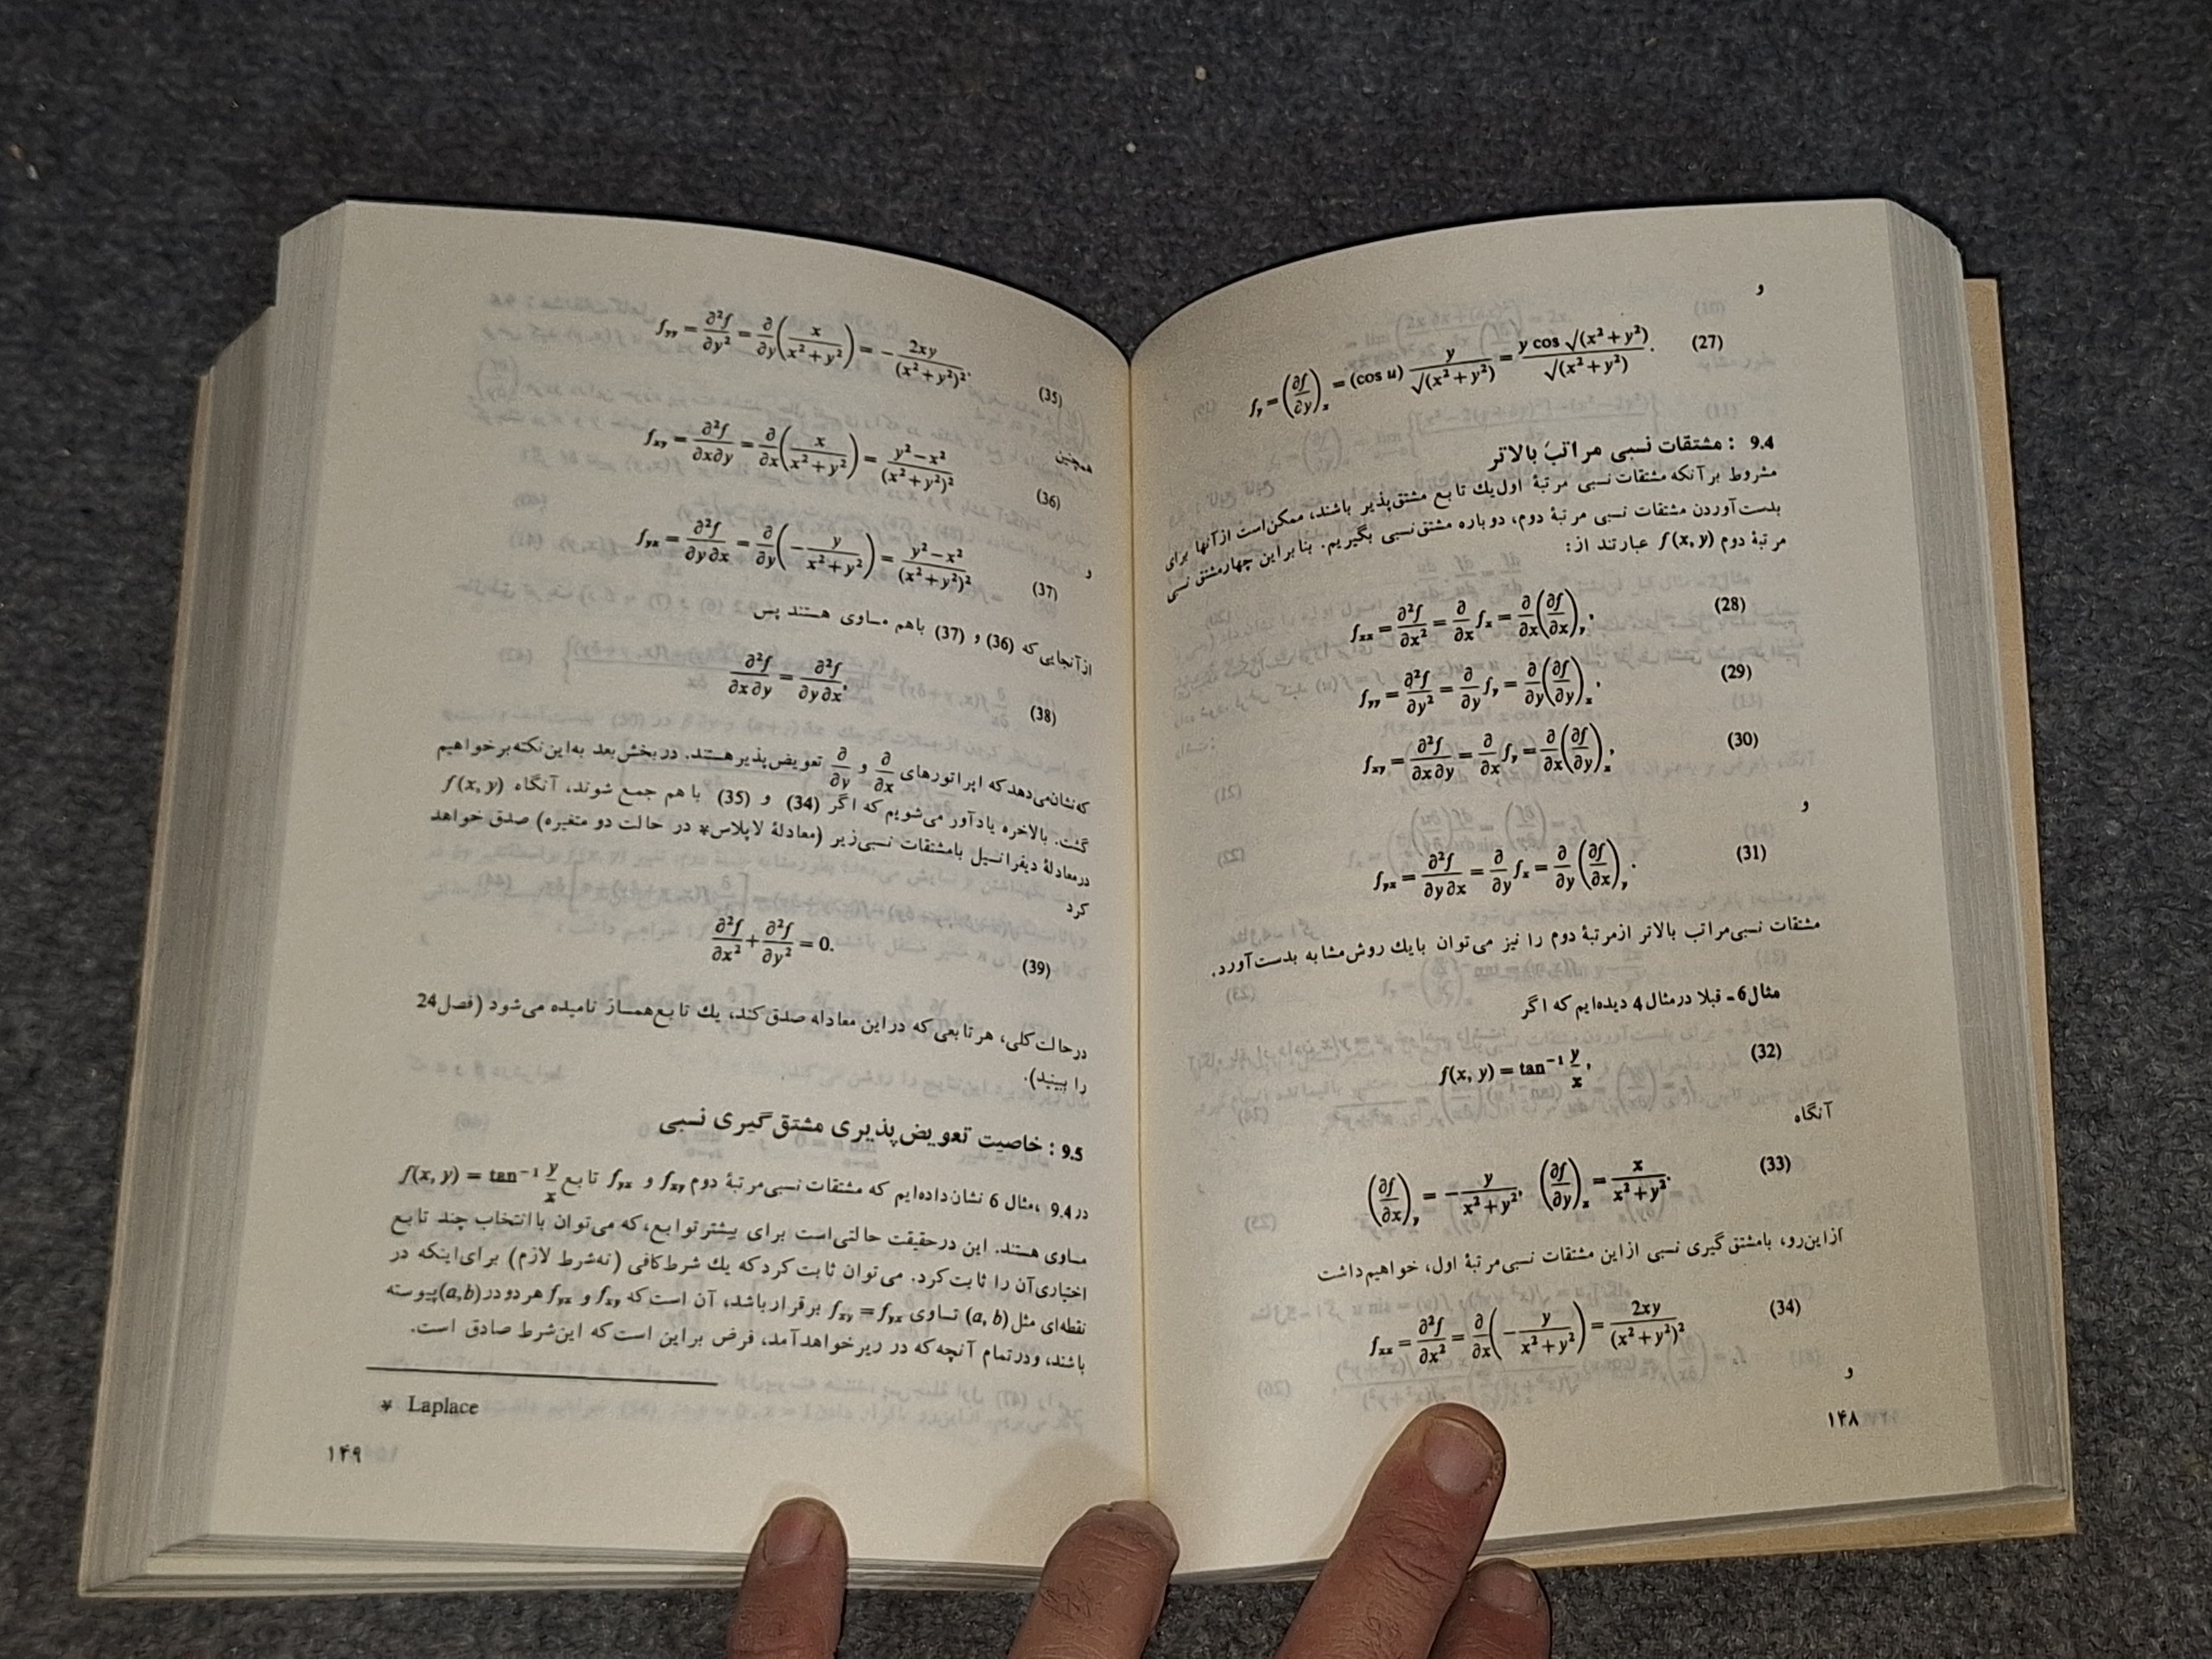 و
f_y = (∂f/∂y)_x = (cos u) y/√(x²+y²) = y cos √(x²+y²)/√(x²+y²). (27)
9.4 : مشتقات نسبی مراتب بالاتر
مشروط بر آنکه مشتقات نسبی مرتبهٔ اول یك تابع مشتق‌پذیر باشند، ممکن‌است از آنها برای
بدست‌آوردن مشتقات نسبی مرتبهٔ دوم، دوباره مشتق‌نسبی بگیریم. بنابراین چهارمشتق نسبی
مرتبهٔ دوم f(x, y) عبارتند از:
f_xx = ∂²f/∂x² = ∂/∂x f_x = ∂/∂x (∂f/∂x)_y, (28)
f_yy = ∂²f/∂y² = ∂/∂y f_y = ∂/∂y (∂f/∂y)_x, (29)
f_xy = ∂²f/∂x∂y = ∂/∂x f_y = ∂/∂x (∂f/∂y)_x, (30)
و
f_yx = ∂²f/∂y∂x = ∂/∂y f_x = ∂/∂y (∂f/∂x)_y. (31)
مشتقات نسبی‌مراتب بالاتر ازمرتبهٔ دوم را نیز می‌توان بایك روش‌مشابه بدست‌آورد.
مثال6ـ قبلا درمثال 4 دیده‌ایم که اگر
f(x, y) = tan⁻¹ y/x, (32)
آنگاه
(∂f/∂x)_y = −y/(x²+y²), (∂f/∂y)_x = x/(x²+y²). (33)
ازاین‌رو، بامشتق‌گیری نسبی ازاین مشتقات نسبی‌مرتبهٔ اول، خواهیم‌داشت
f_xx = ∂²f/∂x² = ∂/∂x (−y/(x²+y²)) = 2xy/(x²+y²)² (34)
و
۱۴۸
f_yy = ∂²f/∂y² = ∂/∂y (x/(x²+y²)) = −2xy/(x²+y²)². (35)
همچنین
f_xy = ∂²f/∂x∂y = ∂/∂x (x/(x²+y²)) = (y²−x²)/(x²+y²)² (36)
و
f_yx = ∂²f/∂y∂x = ∂/∂y (−y/(x²+y²)) = (y²−x²)/(x²+y²)² (37)
ازآنجایی‌که (36) و (37) باهم مساوی هستند پس
∂²f/∂x∂y = ∂²f/∂y∂x, (38)
که‌نشان‌می‌دهدکه اپراتورهای ∂/∂x و ∂/∂y تعویض‌پذیرهستند. دربخش‌بعد به‌این‌نکته‌برخواهیم
گشت. بالاخره یادآور می‌شویم که اگر (34) و (35) با هم جمع شوند، آنگاه f(x, y)
درمعادلهٔ دیفرانسیل بامشتقات نسبی‌زیر (معادلهٔ لاپلاس* در حالت دو متغیره) صدق خواهد
کرد
∂²f/∂x² + ∂²f/∂y² = 0. (39)
درحالت‌کلی، هرتابعی‌که دراین معادله صدق‌کند، یك تابع‌همساز نامیده می‌شود (فصل24
را ببینید).
9.5 : خاصیت تعویض‌پذیری مشتق‌گیری نسبی
در9.4 ،مثال 6 نشان‌داده‌ایم که مشتقات نسبی‌مرتبهٔ دوم f_xy و f_yx تابع f(x, y) = tan⁻¹ y/x
مساوی هستند. این درحقیقت حالتی‌است برای بیشترتوابع،که می‌توان باانتخاب چند تابع
اختیاری‌آن را ثابت‌کرد. می‌توان ثابت‌کردکه یك شرط‌کافی (نه‌شرط لازم) برای‌اینکه در
نقطه‌ای مثل(a, b) تساوی f_xy = f_yx برقرارباشد، آن است‌که f_xy و f_yx هردودر(a,b)پیوسته
باشند، ودرتمام آنچه‌که در زیرخواهدآمد، فرض براین است‌که این‌شرط صادق است.
* Laplace
۱۴۹